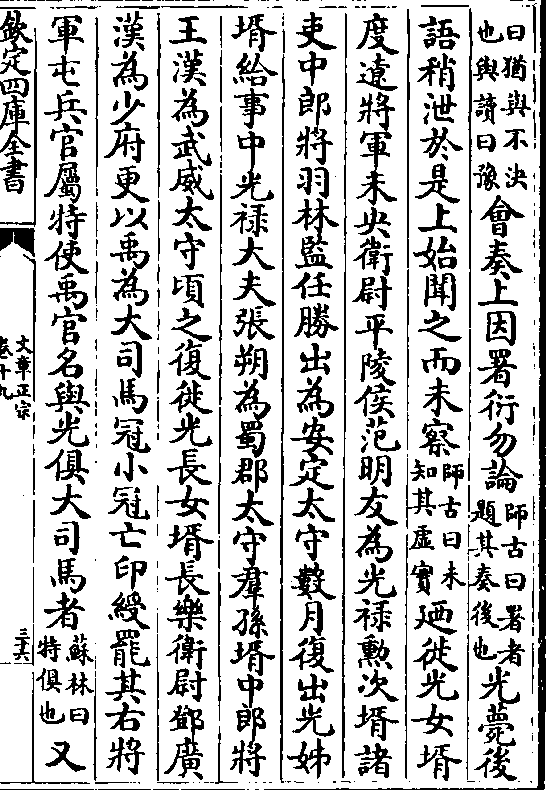 曰猶與不決
也與讀曰豫
會奏上因署衍勿論
師古曰署者
題其奏後也
光薨後
語稍泄於是上始聞之而未察
師古曰未
知其虛實
廼徙光女壻
度遼將軍未央衛尉平陵侯范明友為光禄勲次壻諸
吏中郎將羽林監任勝出為安定太守數月復出光姊
壻給事中光禄大夫張朔為蜀郡太守羣孫壻中郎將
王漢為武威太守頃之復徙光長女壻長樂衛尉鄧廣
漢為少府更以禹為大司馬冠小冠亡印綬罷其右將
軍屯兵官屬特使禹官名與光俱大司馬者
蘇林曰
特俱也
又
欽定四庫全書
文章正宗
卷十九
三六